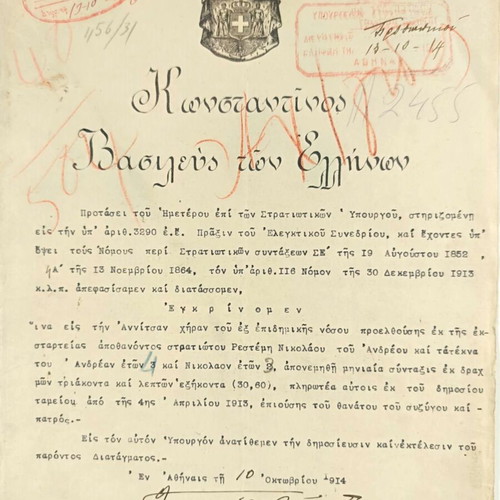 456/31
ΥΠΟΥΡΓΕΙΟΝ
13-10-14
Α 2455
Κωνσταντῖνος
Βασιλεὺς τῶν Ἑλλήνων
Προτάσει τοῦ Ἡμετέρου ἐπί τῶν Στρατιωτικῶν Ὑπουργοῦ, στηριζομένῃ
εἰς τήν ὑπ' ἀριθ.3290 ἐ.ἔ. Πρᾶξιν τοῦ Ἐλεγκτικοῦ Συνεδρίου, καί ἔχοντες ὑπ'
ὄψει τούς Νόμους περί Στρατιωτικῶν συντάξεων ΣΕ΄ τῆς 19 Αὐγούστου 1852
ΛΑ΄ τῆς 13 Νοεμβρίου 1864, τόν ὑπ'ἀριθ.116 Νόμον τῆς 30 Δεκεμβρίου 1913
κ.λ.π. ἀπεφασίσαμεν καί διατάσσομεν,
Ἐγκρίνομεν
ἵνα εἰς τήν Ἀννίτσαν χήραν τοῦ ἐξ ἐπιδημικῆς νόσου προελθούσης ἐκ τῆς ἐκ
σταρτείας ἀποθανόντος στρατιώτου Ρεστέμη Νικολάου τοῦ Ἀνδρέου καί τά τέκνα
του Ἀνδρέαν ἐτῶν 4 καί Νικόλαον ἐτῶν 3, ἀπονεμηθῇ μηνιαία σύνταξις ἐκ δραχ
μῶν τριάκοντα καί λεπτῶν ἑξήκοντα (30,60), πληρωτέα αὐτοῖς ἐκ τοῦ δημοσίου
ταμείου ἀπό τῆς 4ης Ἀπριλίου 1913, ἐπιούσης τοῦ θανάτου τοῦ συζύγου καί -
πατρός.-
Εἰς τόν αὐτόν Ὑπουργόν ἀνατίθεμεν τήν δημοσίευσιν καί ἐκτέλεσιν τοῦ
παρόντος Διατάγματος.-
Ἐν Ἀθήναις τῇ 10 Ὀκτωβρίου 1914